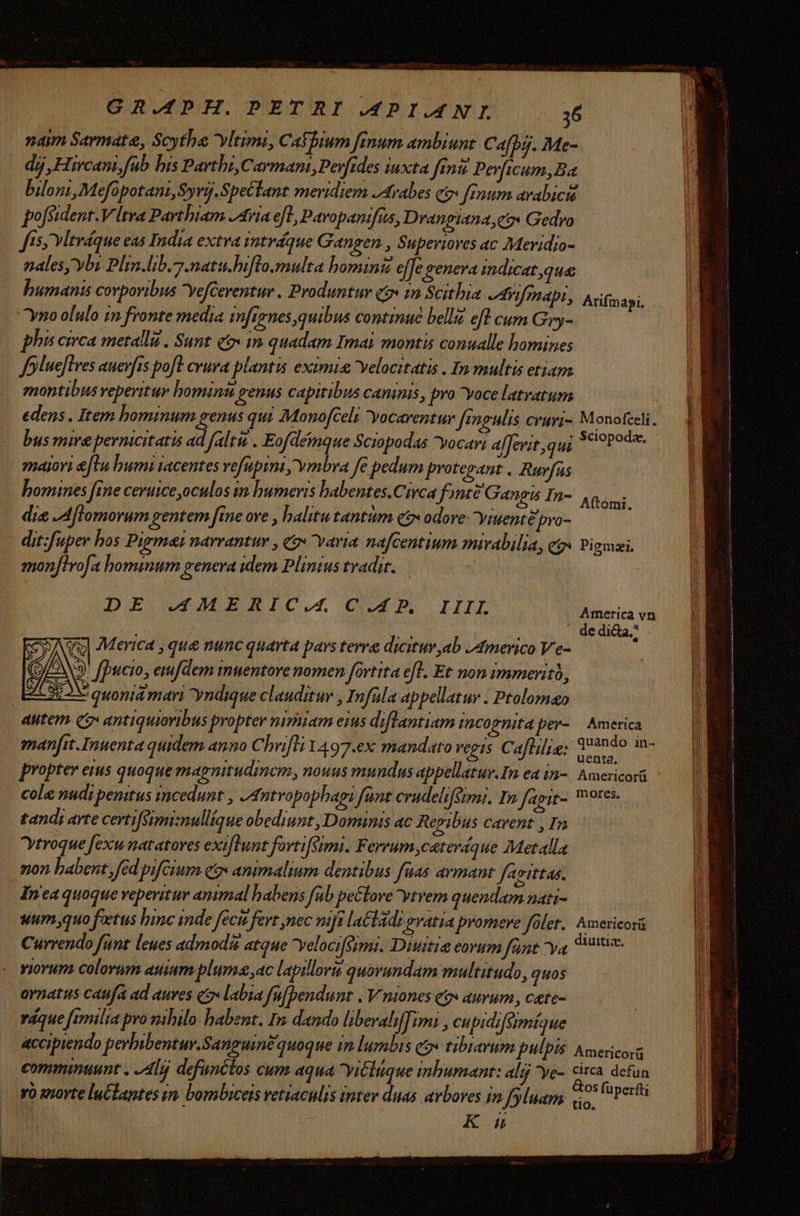 GRAPH. PETRI APIANI. 36
naim Sarmatæ, Scythæ vltimi, Caſpium ſinum ambiunt Caſpij. Me-
dij, Hircani, ſub his Parthi, Carmani, Perſides iuxta ſinū Perſicum, Ba
biloni, Meſopotani, Syrij. Spectant meridiem Arabes & ſinum arabicū
poſsident. Vltra Parthiam Aria eſt, Paropaniſus, Drangiana, & Gedro
ſis, vltráque eas India extra intráque Gangen, Superiores ac Meridio-
nales, vbi Plin. lib. 7. natu. hiſto. multa hominū eſſe genera indicat, quæ
humanis corporibus veſcerentur. Produntur & in Scithia Ariſmapi,
Ariſmapi.
vno olulo in fronte media inſignes, quibus continuè bellū eſt cum Gry-
phis circa metalla. Sunt & in quadam Imai montis conualle homines
ſylueſtres auerſis poſt crura plantis eximiæ velocitatis. In multis etiam
montibus reperitur hominū genus capitibus caninis, pro voce latratum
edens. Item hominum genus qui Monoſceli vocarentur ſingulis cruri-
Monoſceli.
bus miræ pernicitatis ad ſaltū. Eoſdémque Sciopodas vocari aſſerit, qui
Sciopodæ.
maiori æſtu humi iacentes reſupini, vmbra ſe pedum protegant. Rurſus
homines ſine ceruice, oculos in humeris habentes. Circa fontē Gangis In-
Aſtomi.
diæ Aſtomorum gentem ſine ore, halitu tantùm & odore viuentē pro-
dit: ſuper hos Pigmæi narrantur, & varia naſcentium mirabilia, &
Pigmæi.
monſtroſa hominum genera idem Plinius tradit.
DE AMERICA. CAP. IIII.
America vn
de dicta.
America, quæ nunc quarta pars terræ dicitur, ab Americo Ve-
ſpucio, eiuſdem inuentore nomen ſortita eſt. Et non immeritò,
quoniā mari vndique clauditur, Inſula appellatur. Ptolomæo
autem & antiquioribus propter nimiam eius diſtantiam incognita per-
America
manſit. Inuenta quidem anno Chriſti 1497. ex mandato regis Caſtiliæ:
quando in-
uenta.
propter eius quoque magnitudinem, nouus mundus appellatur. In ea in-
Americorū
colæ nudi penitus incedunt, Antropophagi ſunt crudeliſsimi. In ſagit-
mores.
tandi arte certiſsimi: nullíque obediunt, Dominis ac Regibus carent, In
vtroque ſexu natatores exiſtunt fortiſsimi. Ferrum, cæteráque Metalla
non habent, ſed piſcium & animalium dentibus ſuas armant ſagittas.
In ea quoque reperitur animal habens ſub pectore vtrem quendam nati-
uum, quo fœtus hinc inde ſecū fert, nec niſi lactādi gratia promere ſolet.
Americorū
diuitiæ.
Currendo ſunt leues admodū atque velociſsimi. Diuitiæ eorum ſunt va
riorum colorum auium plumæ, ac lapillorū quorundam multitudo, quos
ornatus cauſa ad aures & labia ſuſpendunt. Vniones & aurum, cæte-
ráque ſimilia pro nihilo habent. In dando liberaliſſimi, cupidiſsimíque
accipiendo perhibentur. Sanguinē quoque in lumbis & tibiarum pulpis
Americorū
comminuunt. Alij defunctos cum aqua victúque inhumant: alij ve-
circa defun
rò morte luctantes in bombiceis retiaculis inter duas arbores in ſyluam
ctos ſuperſti
tio.
K ij